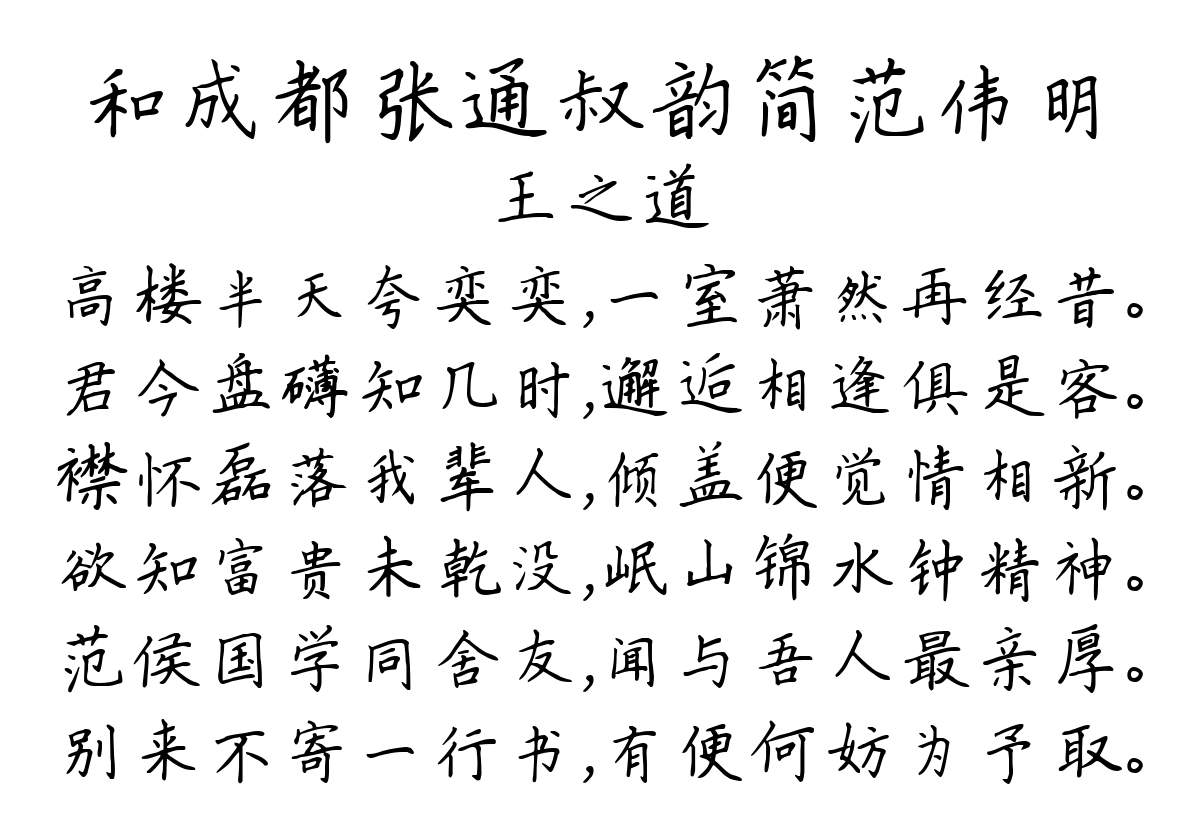 和成都张通叔韵简范伟明
王之道
高楼半天夸奕奕,一室萧然再经昔。
君今盘礴知几时,邂逅相逢俱是客。
襟怀磊落我辈人,倾盖便觉情相新。
欲知富贵未乾没,岷山锦水钟精神。
范侯国学同舍友,闻与吾人最亲厚。
别来不寄一行书,有便何妨为予取。